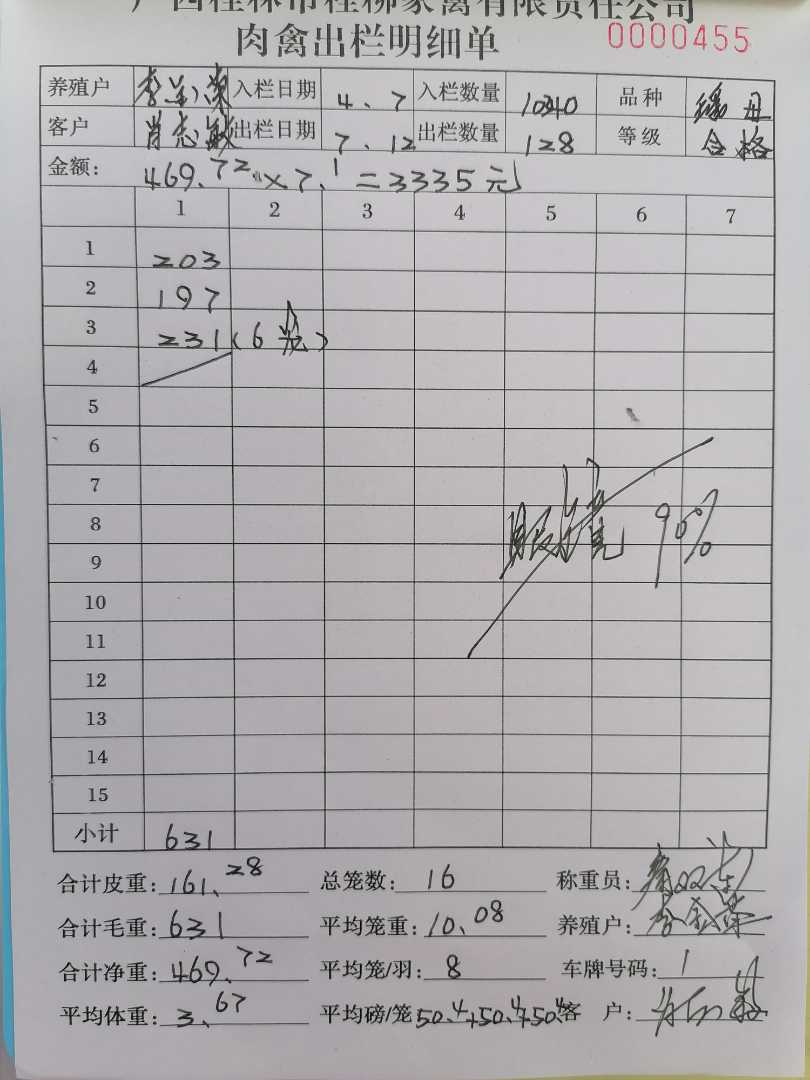 广西桂林市桂柳家禽有限责任公司
肉禽出栏明细单 0000455
养殖户 李 荣 入栏日期 4.7 入栏数量 10340 品种 母
客户 肖志敏 出栏日期 7.12 出栏数量 128 等级 合格
金额: 469.72 × 7.1 = 3335元
1 2 3 4 5 6 7
1 203
2 197
3 231(6笼)
4
5
6
7
8 90%
9
10
11
12
13
14
15
小计 631
合计皮重: 161.28 总笼数: 16 称重员:
合计毛重: 631 平均笼重: 10.08 养殖户: 李 荣
合计净重: 469.72 平均笼/羽: 8 车牌号码: 1
平均体重: 3.67 平均磅/笼 50.4+50.4+50.4 客 户: